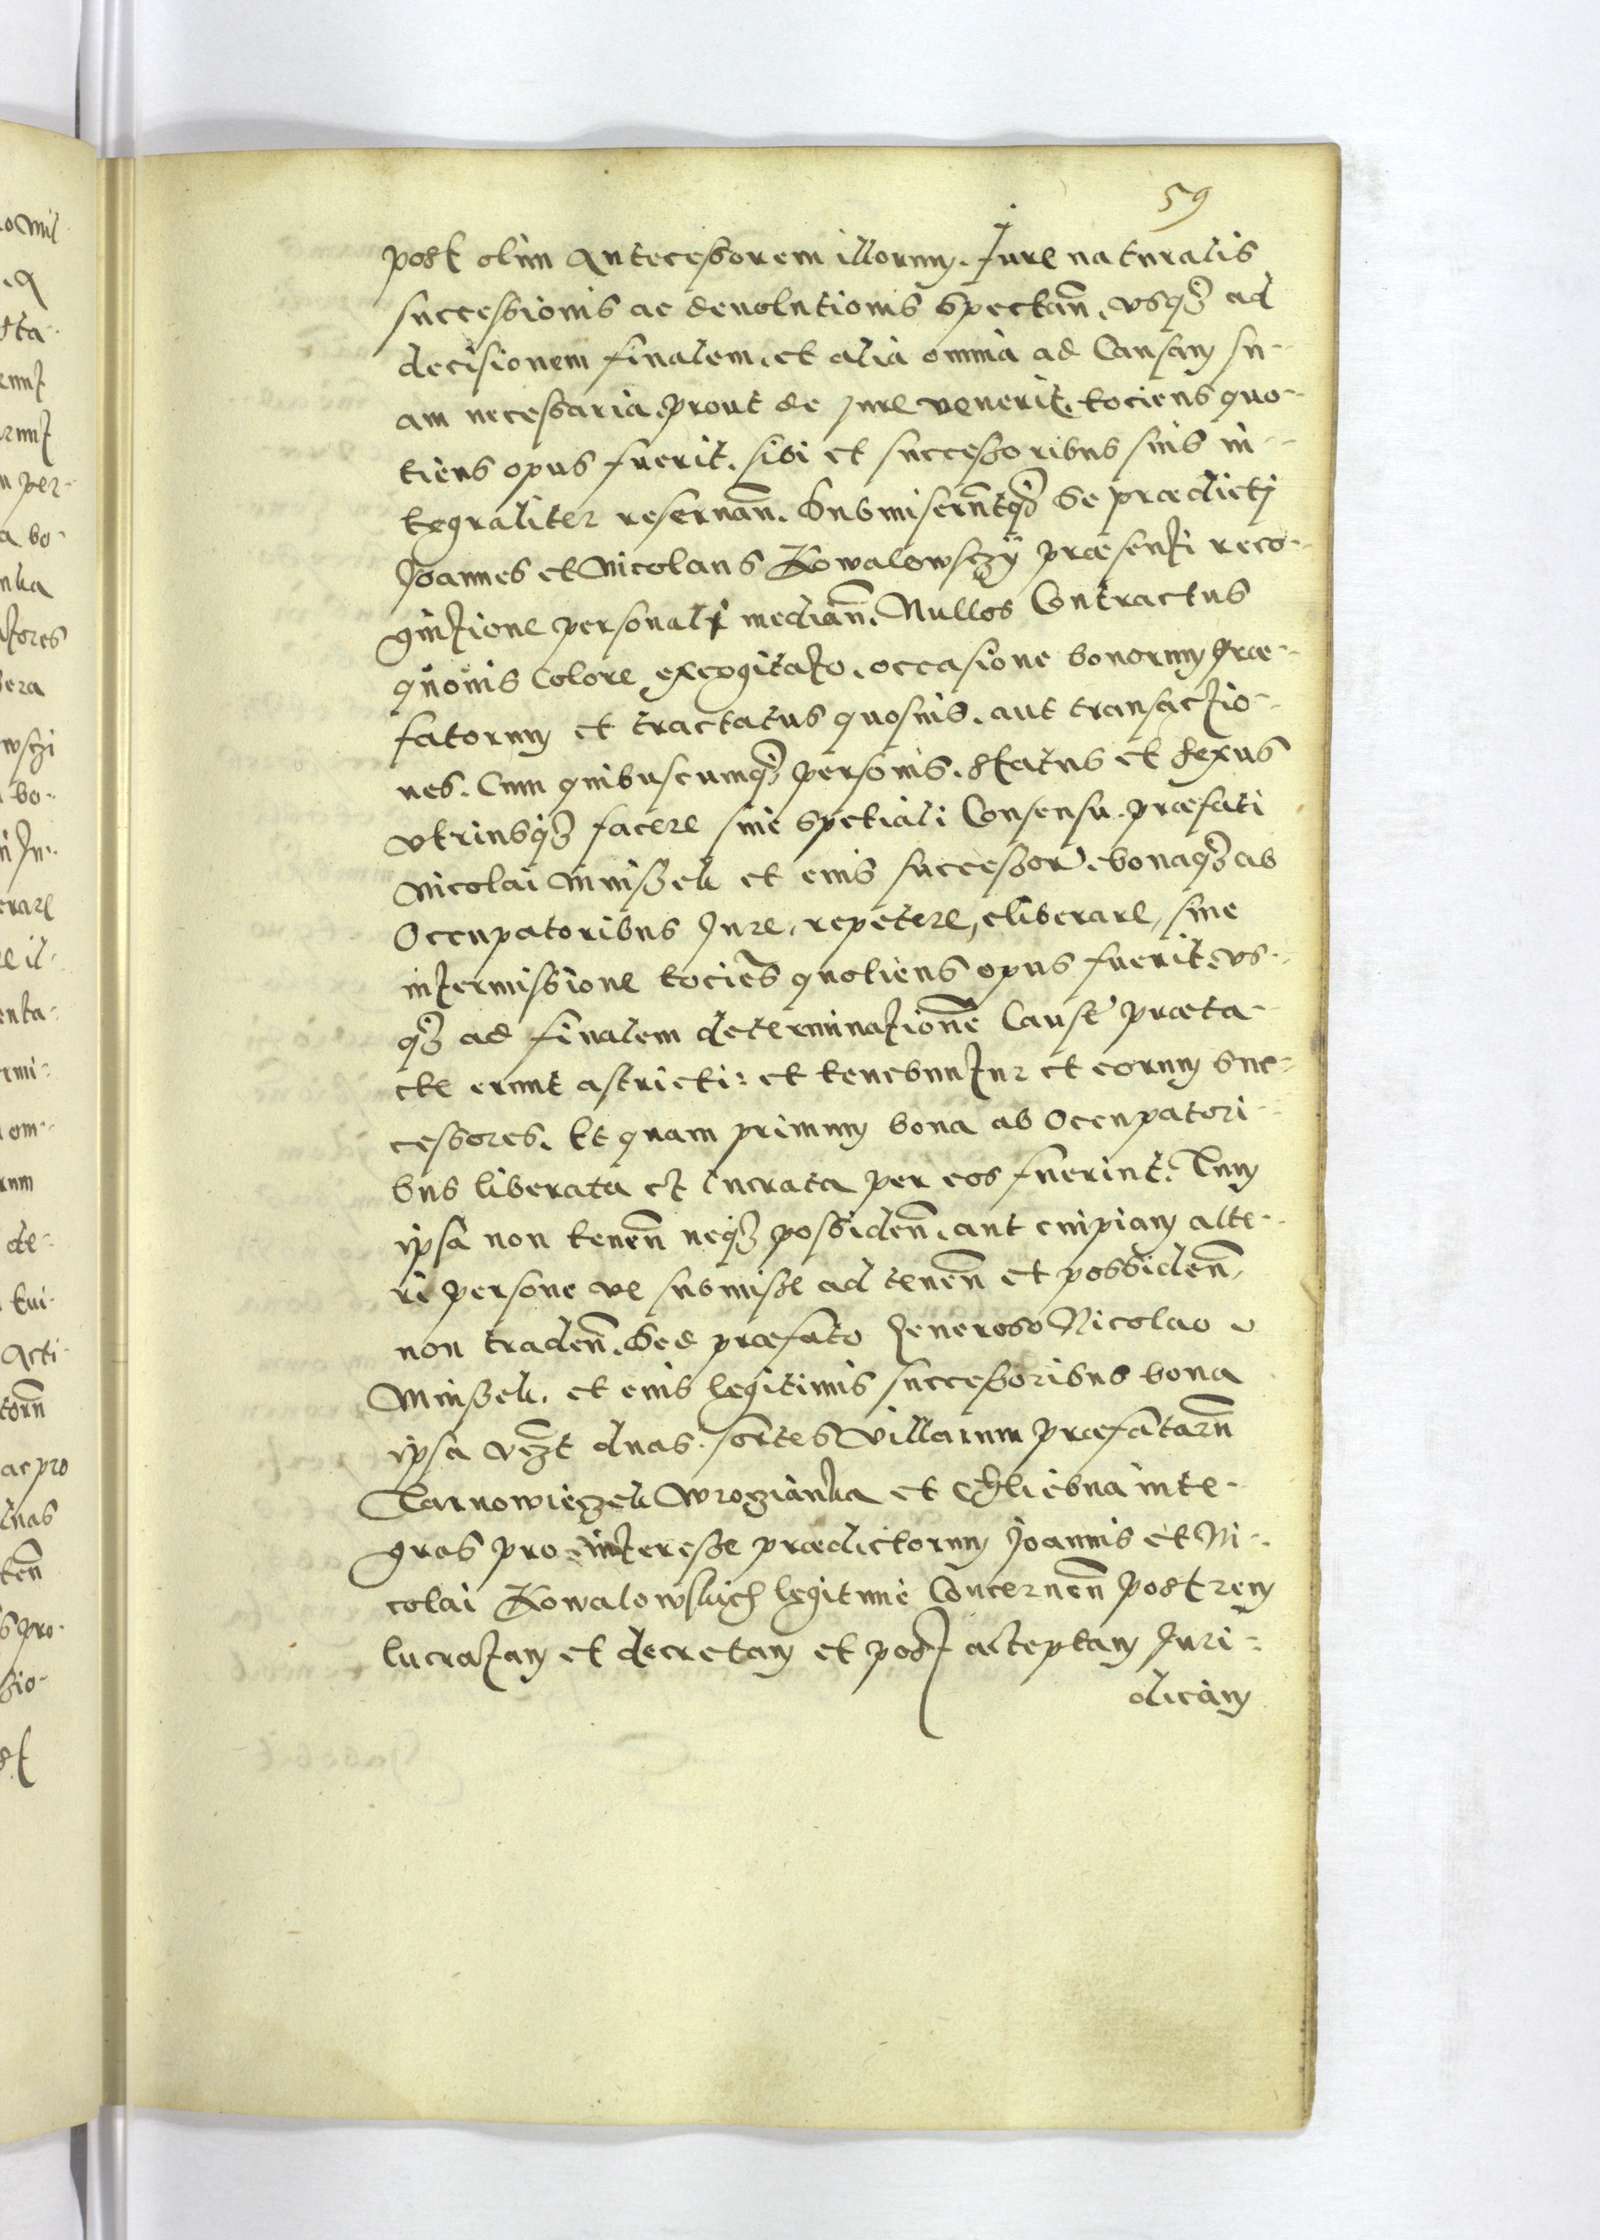 59
post olim Antecessorem illorum. Jure naturalis
successionis ac deuolutionis spectan̄. vsq₃ ad
decisionem finalem. et alia omnia ad Causam su-
am necessaria. prout de jure venerit. tociens quo-
tiens opus fuerit. sibi et successoribus suis in-
tegraliter reseruan̄. Submiserūtq₃ se prædicti
Joannes et Nicolaus Kowalowsczÿ præsenti reco-
gnitione personali median̄. Nullos Contractus
quouis Colore excogitato. occasione bonorum præ-
fatorum et tractatus quosuis. aut transactio-
nes. Cum quibuscumq₃ personis. status et sexus
vtriusq₃ facere sine spetiali Consensu. præfati
Nicolai Mnisẜek et eius successor̄. bonaq₃ ab
Occupatoribus Jure, repetere, eliberare, sine
intermissione tociēs quotiens opus fuerit. vs-
q₃ ad finalem determinationē Causę præta-
cte erunt astricti: et tenebuntur et eorum suc-
cessores. Et quam primum bona ab Occupatori-
bus liberata et lucrata per eos fuerint. Tum
ipsa non tenen̄ neq₃ possiden̄. aut cuipiam alte-
ri persone ve submisse ad tenen̄ et possiden̄,
non traden̄. Sed præfato Generoso Nicolao
Mnisẜek. et eius legitimis successoribus bona
ipsa vꝫt duas. sortes Villarum præfatarū
Tarnowięzek Wrozianka et Chliebna inte-
gras pro interesse prædictorum Joannis et Ni-
colai Kowalowskich legitime Concernen̄ post rem
lucratam et decretam et post acceptam Juri-
dicam